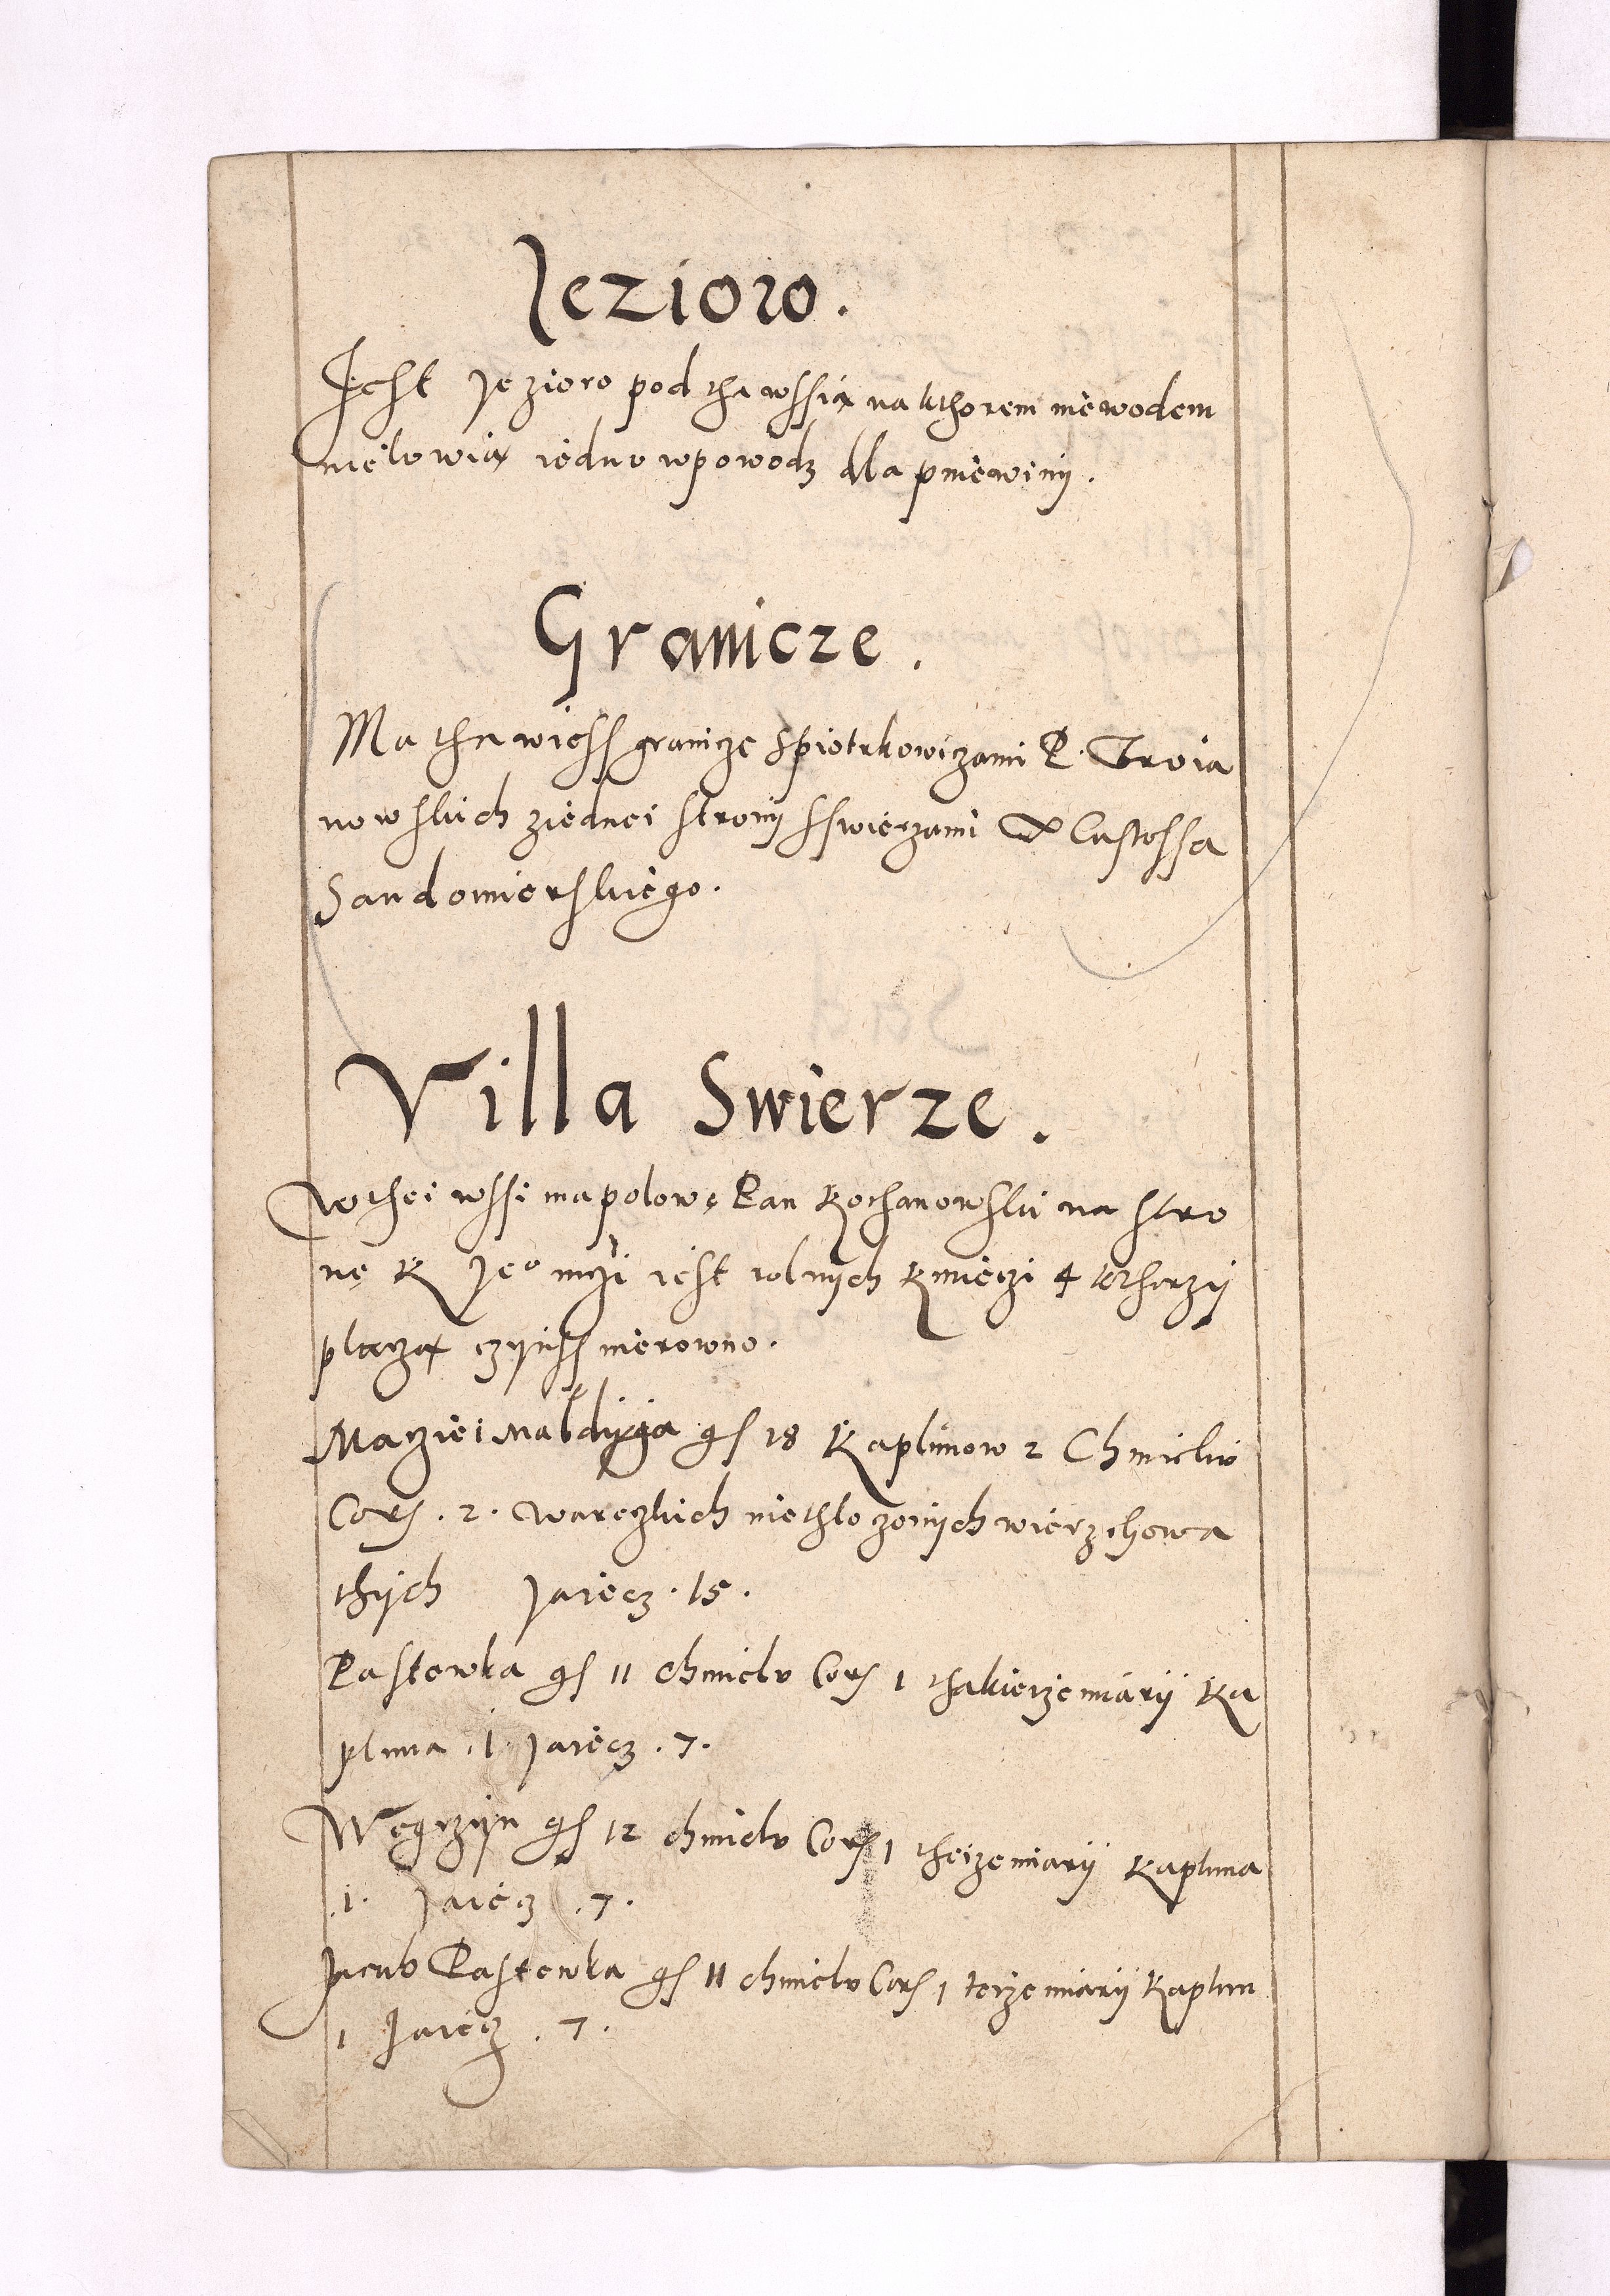 Jezioro.
Jest Jezioro pod tha wssią na kthorem niewodem
nielowią iedno wpowodz dla pniewiny.
Granicze.
Ma tha wiess granicze spiotrkowiczami P. Troia
nowskich ziednei strony sswierzami
Sandomierskiego.
Villa Swierze.
Wthei wssi ma polowę Pan Kochanowski na stro
nę K Jeo mczi iest rolnych Kmieczi 4 ktherzy
placzą czynss nierowno.
Macziei Maldyga gs 18 Kaplunow 2 Chmielu
Cors. 2. wareczkich niethloczonych wierzchowa
thych Jaiecz. 15.
Pastewka gs 11 chmielu Cors 1 thakieize miary Ka
pluna .1. Jaiecz. 7.
Węgrzyn gs 12 chmielu Cors 1 theize miary Kapluna
.1. Jaiecz .7.
Jacub Pastewka gs 11 chmielu Cors 1 teize miary Kaplun
1 Jaiecz . 7.